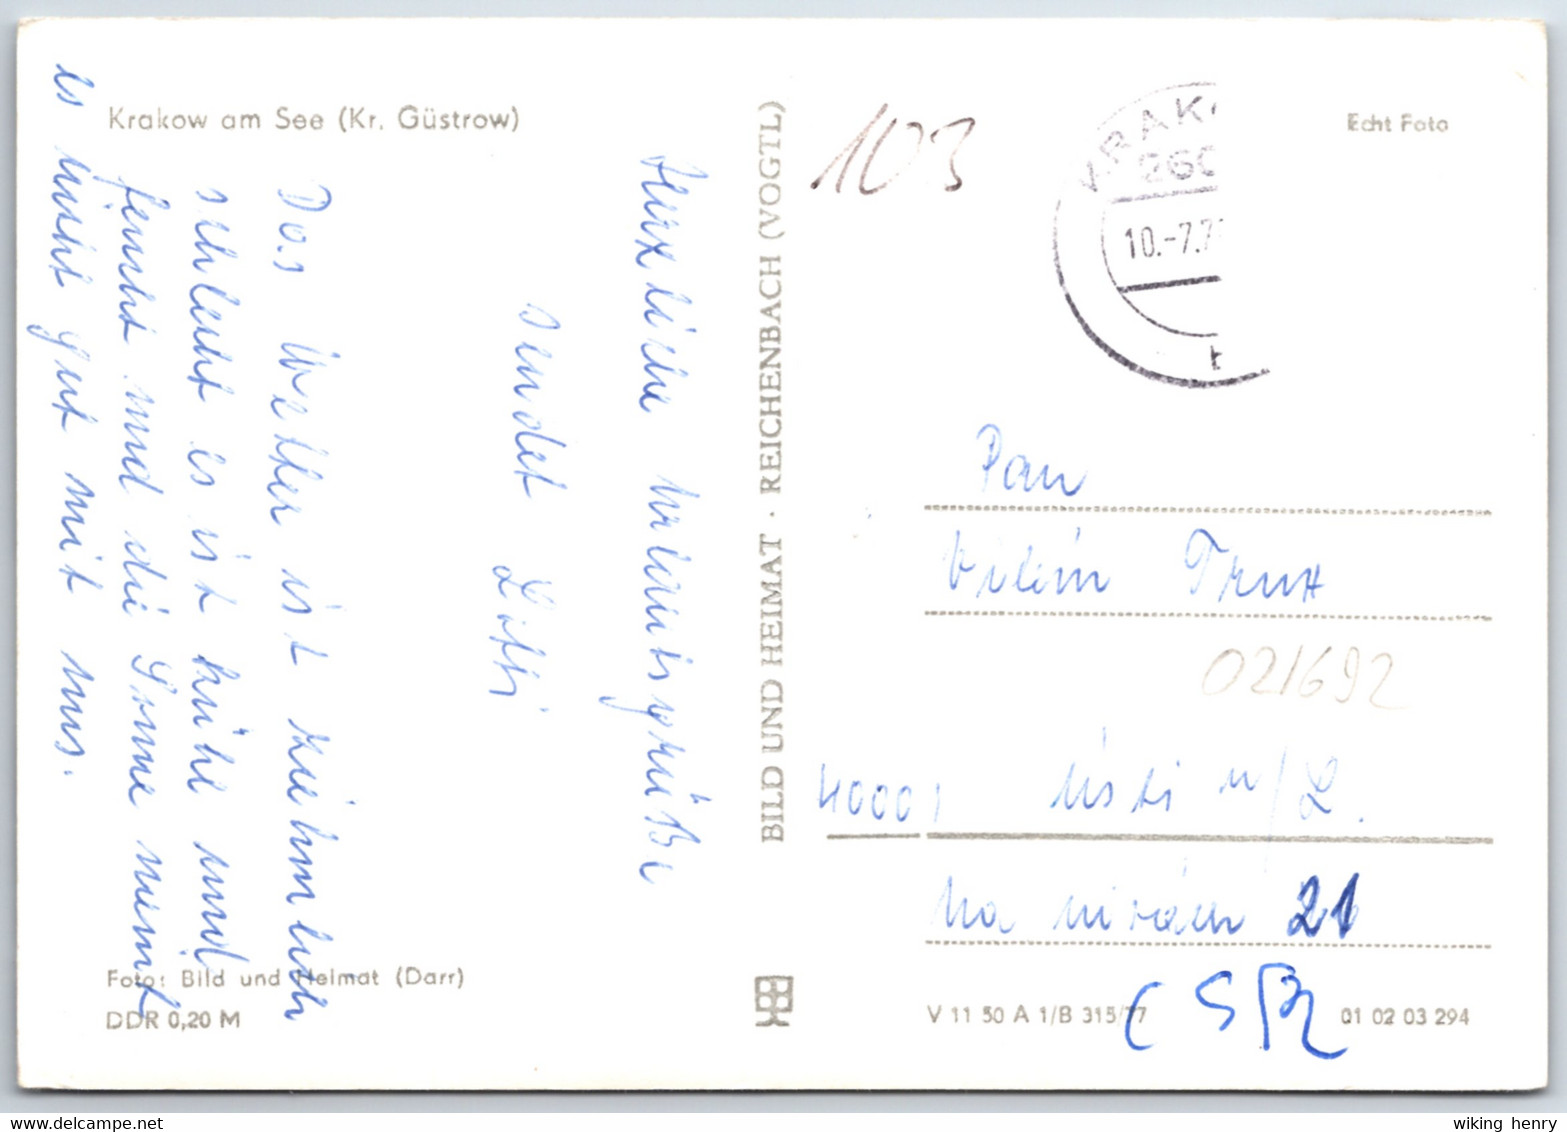 Krakow am See (Kr. Güstrow)
Echt Foto
103
KRAK
260
10.-7.7
t
Herzliche
Urlaubsgrüße
sendet Litti
Das Wetter ist ziemlich
schlecht es ist kühl und
feucht und die Sonne meint
es nicht gut mit uns.
BILD UND HEIMAT · REICHENBACH (VOGTL)
Pan
Vilém Trux
021692
40001 Ústí n/L.
Na nivách 21
ČSR
Foto: Bild und Heimat (Darr)
DDR 0,20 M
V 11 50 A 1/B 315/77
01 02 03 294
wiking henry